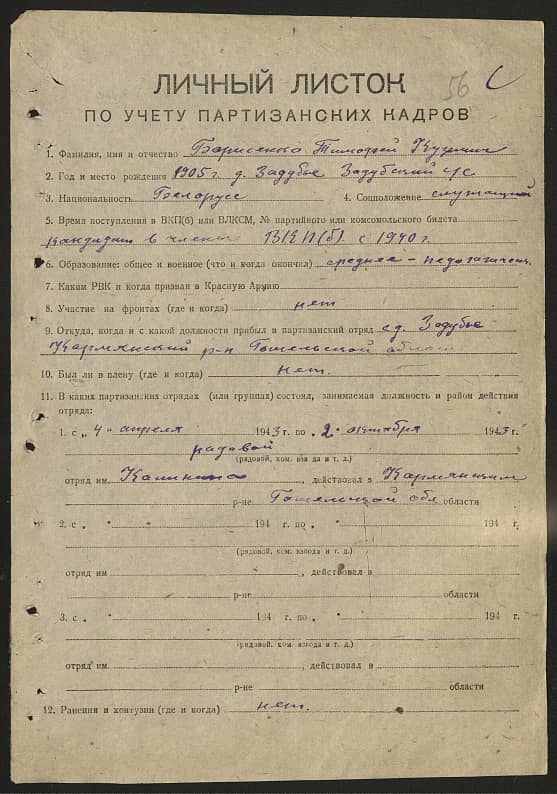 56
ЛИЧНЫЙ ЛИСТОК
ПО УЧЕТУ ПАРТИЗАНСКИХ КАДРОВ
1. Фамилия, имя и отчество Борисенко Тимофей Кузьмич
2. Год и место рождения 1905 г. д. Задубье Задубский с/с
3. Национальность Белорусс 4. Соцположение служащий
5. Время поступления в ВКП(б) или ВЛКСМ, № партийного или комсомольского билета
кандидат в члены ВКП(б). с 1940 г.
6. Образование: общее и военное (что и когда окончил) среднее – педагогическ.
7. Каким РВК и когда призван в Красную Армию
8. Участие на фронтах (где и когда) нет
9. Откуда, когда и с какой должности прибыл в партизанский отряд с д. Задубье
Кармянский р-н Гомельской области
10. Был ли в плену (где и когда) нет.
11. В каких партизанских отрядах (или группах) состоял, занимаемая должность и район действия
отряда:
1. с „4" апреля 1943 г. по „2" октября 1943 г.
рядовой
(рядовой, ком. взвода и т. д.)
отряд им Калинина, действовал в Кармянском
р-не Гомельской обл области
2. с „ " 194 г. по „ " 194 г.
(рядовой, ком. взвода и т. д.)
отряд им , действовал в
р-не области
3. с „ " 194 г. по „ " 194 г.
(рядовой, ком. взвода и т. д.)
отряд им , действовал в
р-не области
12. Ранения и контузии (где и когда) нет.